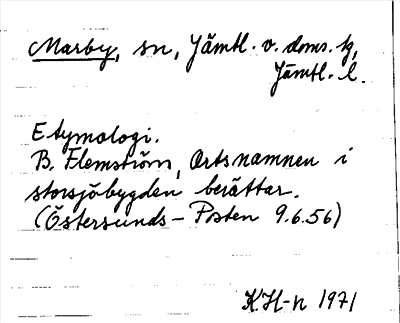 Marby, sn, Jämtl. v. doms. tg,
Jämtl. l.
Etymologi.
B. Flemström, Ortsnamnen i
storsjöbygden berättar.
(Östersunds-Posten 9.6.56)
KH-n 1971